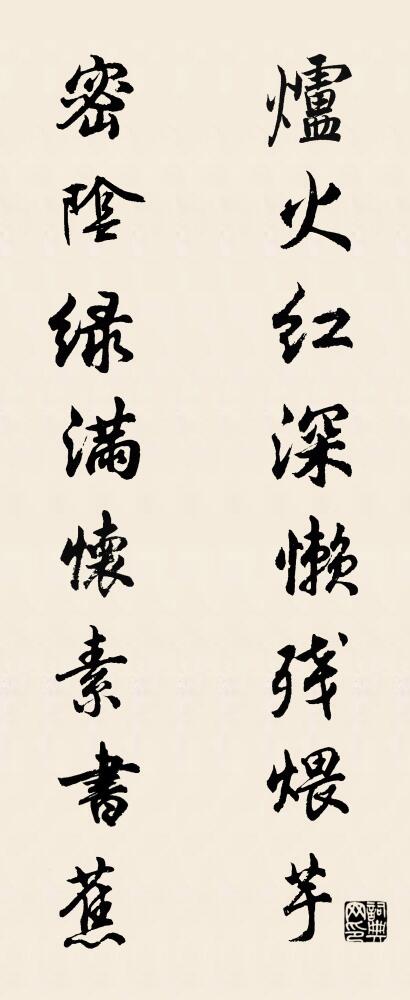 爐火红深懒残煨芋
密陰绿滿懷素書蕉
詞典网印